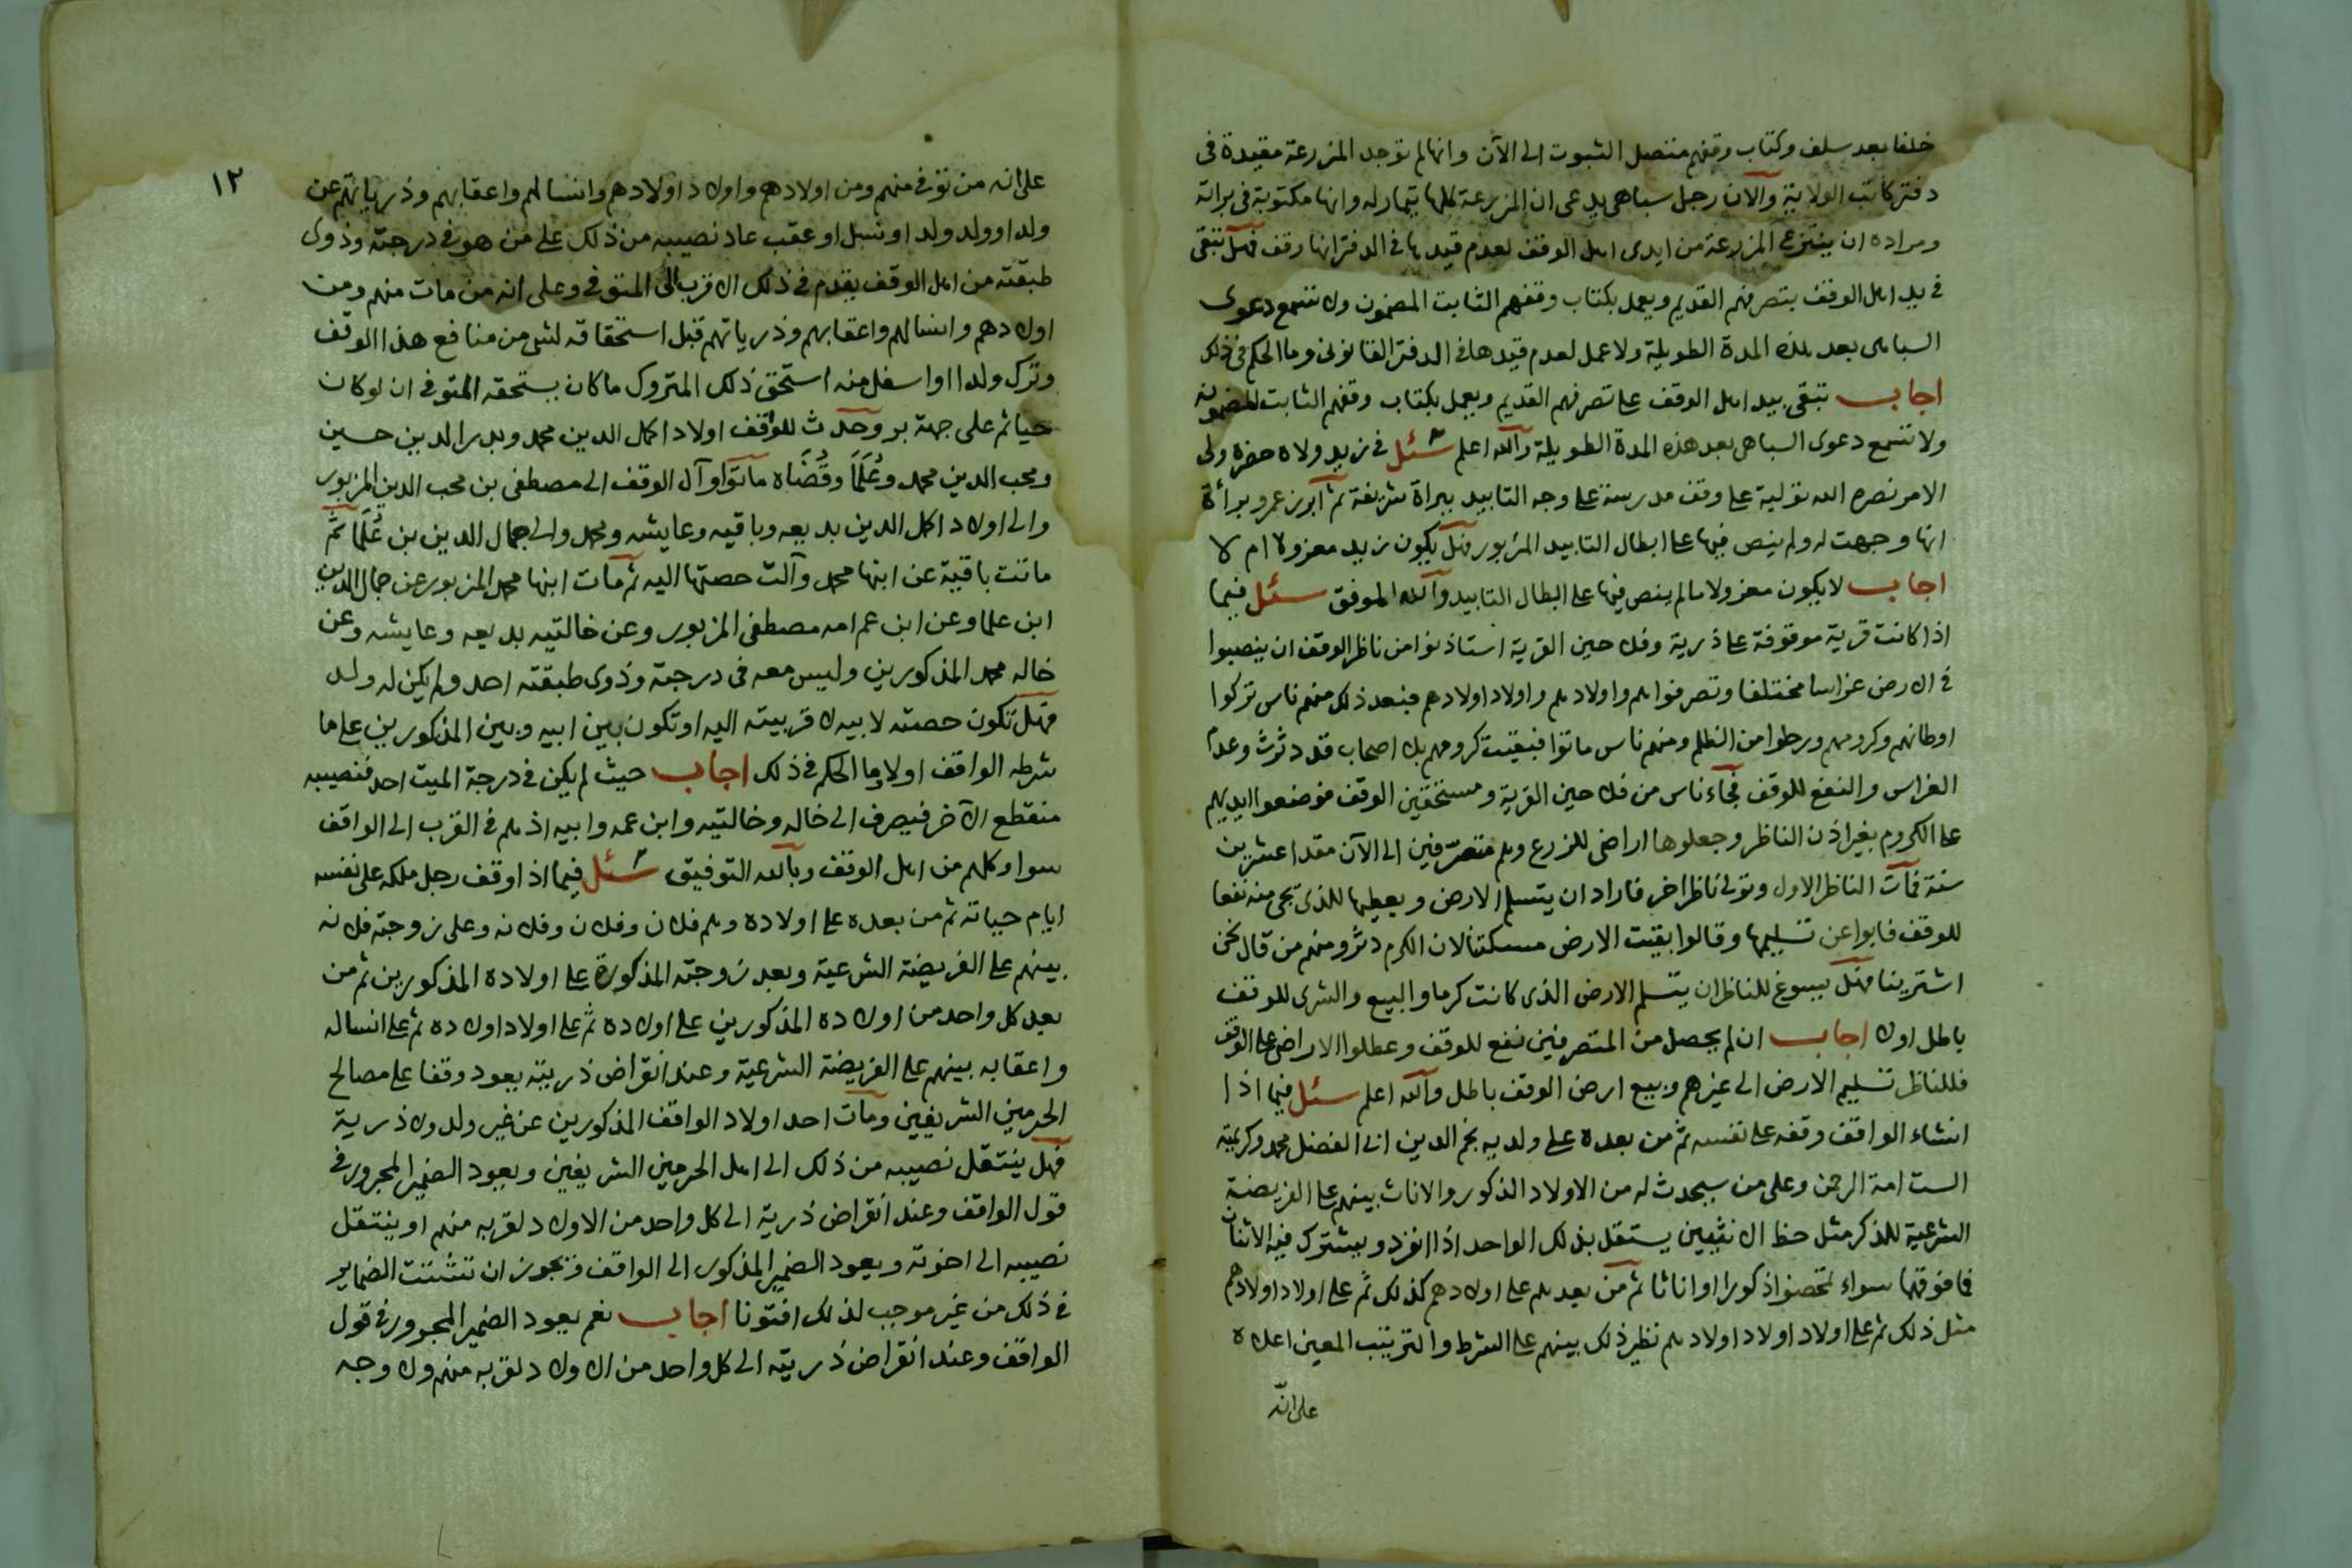 خلفا بعد سلف وكتاب وقفهم متصل الثبوت الى الآن وانها لم توجد المزرعة مقيدة فى
دفتر كاتب الولاية والآن رجل سباهى يدعى ان المزرعة كلها تيمار له وانها مكتوبة فى براته
ومراده ان ينتزع المزرعة من ايدى اهل الوقف لعدم قيدها فى الدفتر انها وقف فهل تبقى
فى يد اهل الوقف بتصرفهم القديم ويعمل بكتاب وقفهم الثابت المضمون ولا تسمع دعوى
السباهى بعد هذه المدة الطويلة ولا عمل لعدم قيدها فى الدفتر القانونى وما الحكم فى ذلك
اجاب تبقى بيد اهل الوقف على تصرفهم القديم ويعمل بكتاب وقفهم الثابت المضمون
ولا تسمع دعوى السباهى بعد هذه المدة الطويلة والله اعلم سئل فى زيد ولاه حضرة ولى
الامر نصره الله تولية على وقف مدرسة على وجه التابيد ببراة شريفة ثم ابرز عمرو برأة
انها وجهت له ولم ينص فيها على ابطال التابيد المزبور فهل يكون زيد معزولا ام لا
اجاب لا يكون معزولا ما لم ينص فيها على ابطال التابيد والله الموفق سئل فيما
اذا كانت قرية موقوفة على ذرية وفلاحين القرية استاذنوا من ناظر الوقف ان ينصبوا
فى الارض غراسا مختلفا وتصرفوا هم واولادهم واولاد اولادهم فبعد ذلك منهم ناس تركوا
اوطانهم وكرومهم ورحلوا من الظلم ومنهم ناس ماتوا فبقيت كرومهم بلا اصحاب قد دثرت وعدم
الغراس والنفع للوقف فجاء ناس من فلاحين القرية ومستحقين الوقف فوضعوا ايديهم
على الكروم بغير اذن الناظر وجعلوها اراضى للزرع وهم متصرفين الى الآن مقدا عشرين
سنة فمات الناظر الاول وتولى ناظر اخر فاراد ان يتسلم الارض ويعطيها للذى يجى منه نفعا
للوقف فابوا عن تسليمها وقالوا بقيت الارض مسكتنا لان الكرم دثر ومنهم من قال نحن
اشترينا فهل يسوغ للناظر ان يتسلم الارض الذى كانت كرما والبيع والشرى للوقف
باطل اولا اجاب ان لم يحصل من المتصرفين نفع للوقف وعطلوا الاراضى على الوقف
فللناظر تسليم الارض الى غيرهم وبيع ارض الوقف باطل والله اعلم سئل فيما اذا
انشاء الواقف وقفه على نفسه ثم من بعده على ولديه نجم الدين ابى الفضل محمد وكريمته
الست امة الرحمن وعلى من سيحدث له من الاولاد الذكور والاناث بينهم على الفريضة
الشرعية للذكر مثل حظ الانثيين يستقل بذلك الواحد اذا انفرد ويشترك فيه الاثنان
فما فوقهما سواء تمحضوا ذكورا او اناثا ثم من بعدهم على اولادهم كذلك ثم على اولاد اولادهم
مثل ذلك ثم على اولاد اولاد اولادهم نظير ذلك بينهم على الشرط والترتيب المعين اعلاه
على انه
١٢
على انه من توفى منهم ومن اولادهم واولاد اولادهم وانسالهم واعقابهم وذرياتهم عن
ولد او ولد ولد او نسل او عقب عاد نصيبه من ذلك على من هو فى درجته وذوى
طبقته من اهل الوقف يقدم فى ذلك الاقرب الى المتوفى وعلى انه من مات منهم ومن
اولادهم وانسالهم واعقابهم وذرياتهم قبل استحقاقه لشى من منافع هذا الوقف
وترك ولدا او اسفل منه استحق ذلك المتروك ما كان يستحقه المتوفى ان لو كان
حيا ثم على جهة بر وحدث للواقف اولاد اكمل الدين محمد وبدر الدين حسين
ومحب الدين محمد وعُلَمَا وقُضَاه ماتوا وآل الوقف الى مصطفى بن محب الدين المزبور
والى اولاد اكمل الدين بديعه وباقيه وعايشه ومحمد والى جمال الدين بن عُلَمَا ثم
ماتت باقية عن ابنها محمد وآلت حصتها اليه ثم مات ابنها محمد المزبور عن جمال الدين
ابن علما وعن ابن عم امه مصطفى المزبور وعن خالتيه بديعه وعايشه وعن
خاله محمد المذكورين وليس معه فى درجته وذوى طبقته احد ولم يكن له ولد
فهل تكون حصته لابيه لاقربيته اليه او تكون بين ابيه وبين المذكورين على ما
شرطه الواقف اولا وما الحكم فى ذلك اجاب حيث لم يكن فى درجة الميت احد فنصيبه
منقطع الآخر فيصرف الى خاله وخالتيه وابن عمه وابيه اذ هم فى القرب الى الواقف
سوا وكلهم من اهل الوقف وبالله التوفيق سئل فيما اذا وقف رجل ملكه على نفسه
ايام حياته ثم من بعده على اولاده وهم فلان وفلان وفلانه وعلى زوجته فلانه
بينهم على الفريضة الشرعية وبعد زوجته المذكورة على اولاده المذكورين ثم من
بعد كل واحد من اولاده المذكورين على اولاده ثم على اولاد اولاده ثم على انساله
واعقابه بينهم على الفريضة الشرعية وعند انقراض ذريته يعود وقفا على مصالح
الحرمين الشريفين ومات احد اولاد الواقف المذكورين عن غير ولد ولا ذرية
فهل ينتقل نصيبه من ذلك الى اهل الحرمين الشريفين ويعود الضمير المجرور فى
قول الواقف وعند انقراض ذرية الى كل واحد من الاولاد لقربه منهم او ينتقل
نصيبه الى اخوته ويعود الضمير المذكور الى الواقف ويجوز ان تتشتت الضماير
فى ذلك من غير موجب لذلك افتونا اجاب نعم يعود الضمير المجرور فى قول
الواقف وعند انقراض ذريته الى كل واحد من الاولاد لقربه منهم ولا وجه